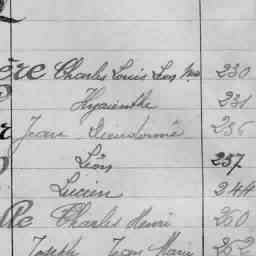 ère Charles Louis Léon 230
Hyacinthe 231
Jean Dieudonné 236
Léon 237
Lucien 244
Charles Henri 250
Joseph Jean Marie 252